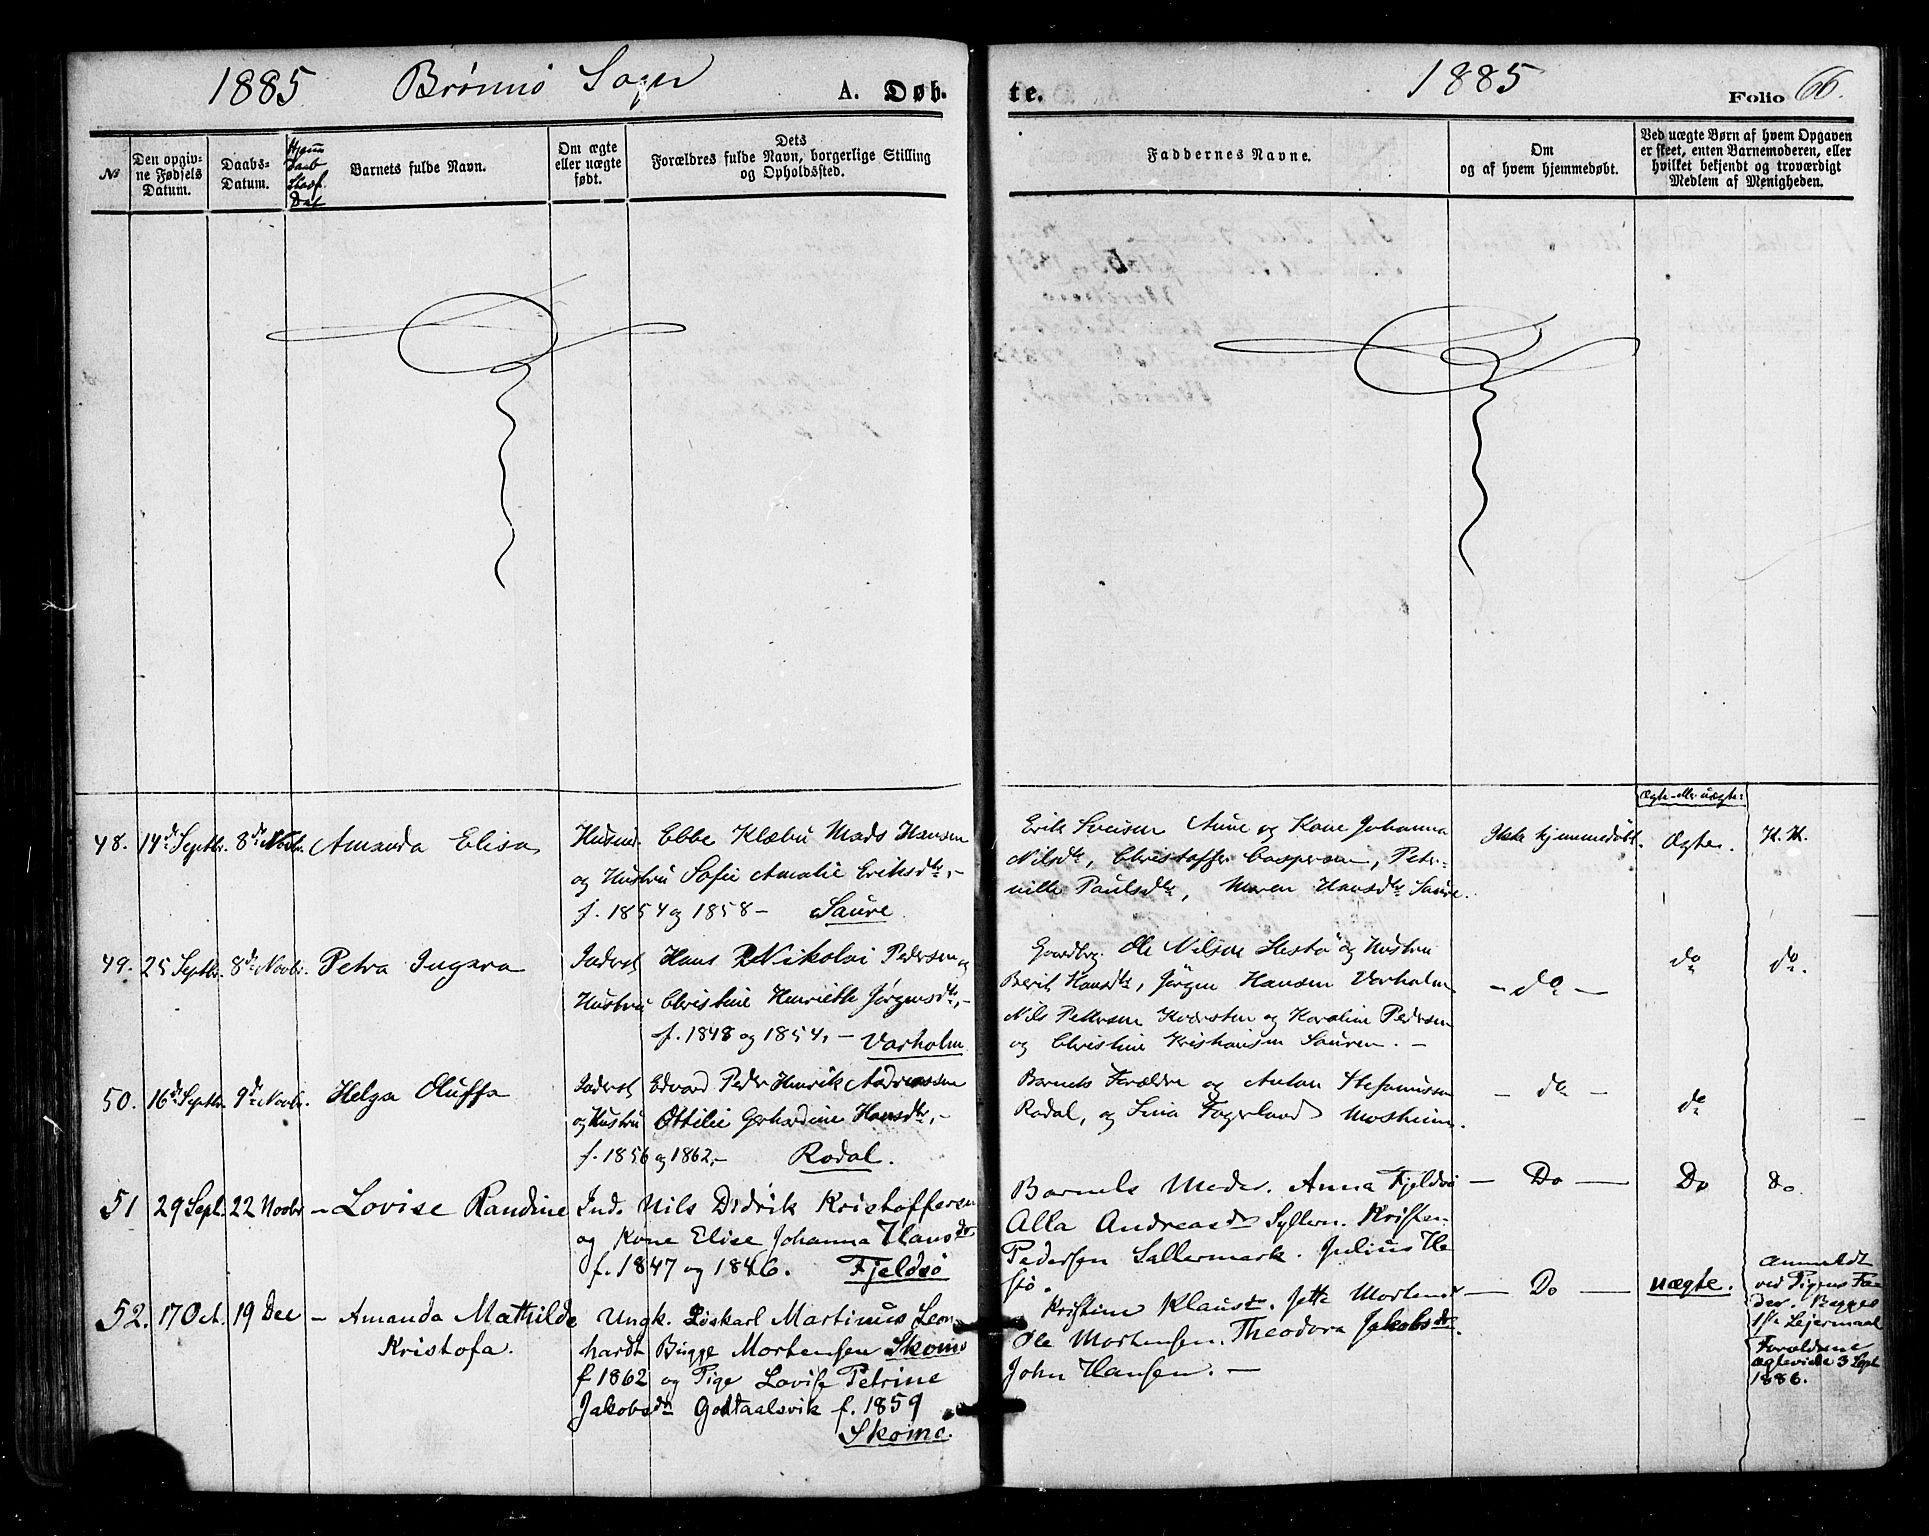 1885 Brønnø Sogn A. Døb-
№
Den opgiv-
ne Fødsels
Datum.
Daabs-
Datum.
Hjem
Daab
Stadf.
Dat
Barnets fulde Navn.
Om ægte
eller uægte
født.
Dets
Forældres fulde Navn, borgerlige Stilling
og Opholdssted.
48. 14de Septbr. 8de Novbr. Amanda Elisa
Husmd. Ebbe Klæbu Mads Hansen
og Hustru Sofie Amalie Eriksdtr, -
f. 1854 og 1858 - Saure.
49. 25 Septbr. 8de Novbr. Petra Ingara
Inderst Hans Nikolai Pedersen og
Hustru Christine Henriette Jørgensdtr, -
f. 1848 og 1854, - Varholm
50. 16de Septbr. 9de Novbr. Helga Oluffa
Inderst Edvard Peder Henrik Andreassen
og Hustru Ottilie Gerhardine Hansdtr, -
f. 1856 og 1862, - Rodal.
51 29 Sept. 22 Novbr - Lovise Randine
Ind. Nils Didrik Kristoffersen
og Kone Elise Johanna Hansdtr
f. 1847 og 1846. Fjeldsø
52. 17 Oct. 19 Dec - Amanda Mathilde
Kristofa.
Ungk. Løskarl Martinus Leon-
hardt Bugge Mortensen Skomo
f 1862 og Pige Lovise Petrine
Jakobsdtr Godtaalsvik f. 1859
Skomo.
te. 1885 Folio 66.
Faddernes Navne.
Om
og af hvem hjemmedøbt.
Ved uægte Børn af hvem Opgaven
er skeet, enten Barnemoderen, eller
hvilket bekjendt og troværdigt
Medlem af Menigheden.
Ægte eller uægte:
Erik Sveisen Aune og Kone Johanna
Nilsdtr, Christoffer Caspersen, Peter-
nille Paulsdtr, Maren Hansdtr Saure.
Ikke hjemmedøbt. Ægte. H. H.
Gaardbrg. Ole Nilsen Hestø og Hustru
Berit Hansdtr, Jørgen Hansen Varholm
Nils Pettersen Kvarsten og Karoline Pedersen
og Christine Kristiansen Sauren. -
- do - do do.
Barnets Forældre og Anton Stefanussen
Rodal, og Lina Fagerland Mosheim.
- do - do
Barnets Moder. Anna Fjeldsø
Alla Andreasdtr Syltern. Kristen
Pedersen Sallermark. Julius He-
stø.
- Do - Do Do.
Kristine Klausdtr. Jette Mortensdtr
Ole Mortensen. Theodora Jakobsdtr.
John Hansen. -
- Do - uægte.
Anmeldt
ved Pigens Fa-
der. Begges
1ste Lejermaal
Forældrene
ægteviede 3 Sept
1886.